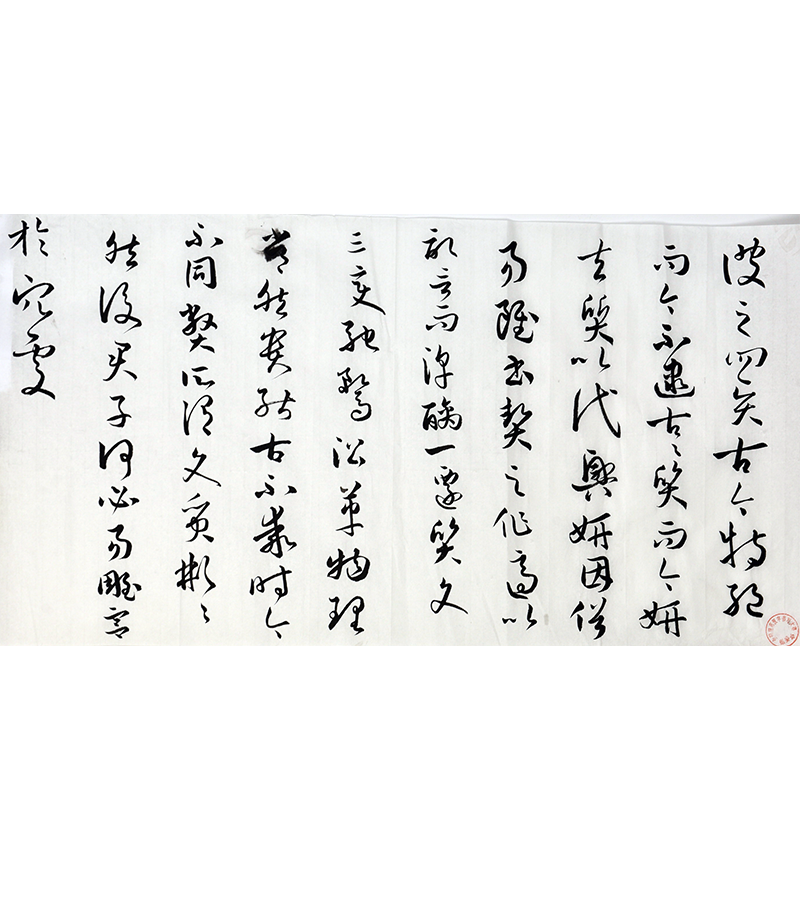 彼之四賢古今特絕
而今不逮古〻質而今妍
夫質以代興妍因俗
易雖書契之作適以
記言而淳醨一遷質文
三變馳騖沿革物理
常然貴能古不乖時今
不同弊所謂文質彬〻
然後君子何必易雕宮
於穴處